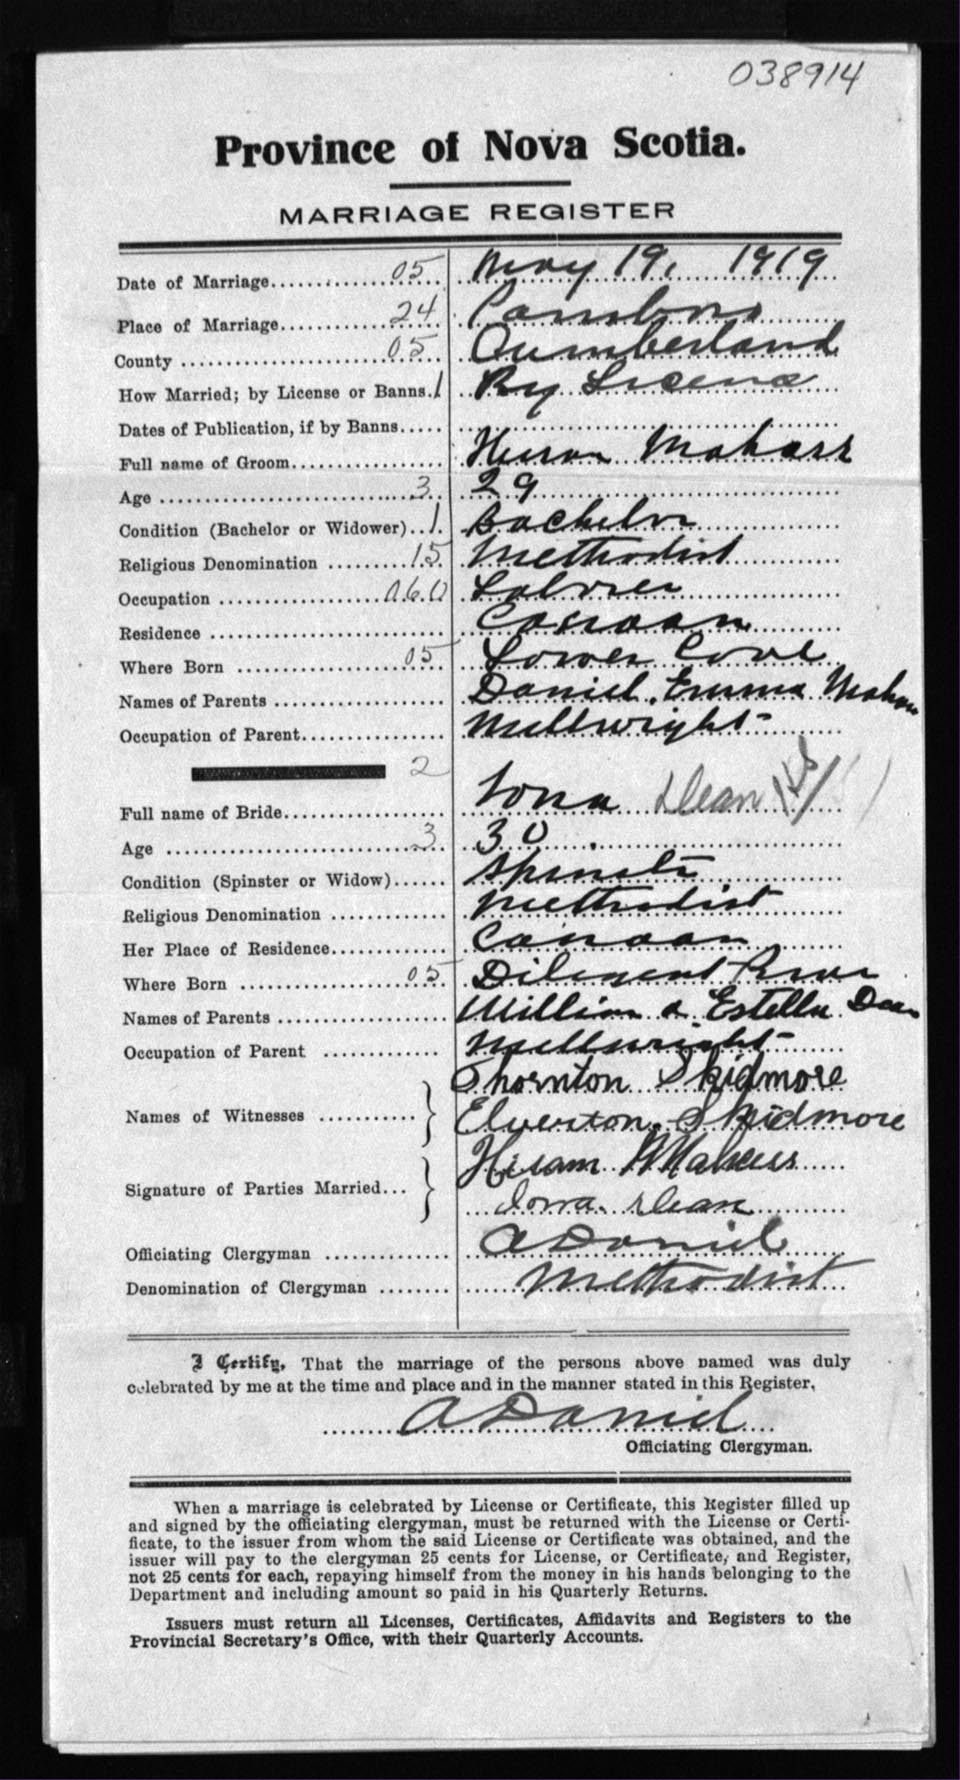 038914
Province of Nova Scotia.
MARRIAGE REGISTER
Date of Marriage 05 May 19, 1919
Place of Marriage 24
County 05 Cumberland
How Married; by License or Banns. 1 By License
Dates of Publication, if by Banns
Full name of Groom
Age 3 29
Condition (Bachelor or Widower) 1 Bachelor
Religious Denomination 15 Methodist
Occupation 060 Laborer
Residence Canaan
Where Born 05 Lower Cove
Names of Parents Daniel, Emma
Occupation of Parent Millwright
2
Full name of Bride Iona Dean
Age 3 30
Condition (Spinster or Widow)
Religious Denomination Methodist
Her Place of Residence Canaan
Where Born 05 Diligent River
Names of Parents William & Estella Dean
Occupation of Parent Millwright
Names of Witnesses Thornton Skidmore
Elverton Skidmore
Signature of Parties Married Hiram
Iona Dean
Officiating Clergyman A Daniel
Denomination of Clergyman Methodist
I Certify, That the marriage of the persons above named was duly
celebrated by me at the time and place and in the manner stated in this Register,
A Daniel
Officiating Clergyman.
When a marriage is celebrated by License or Certificate, this Register filled up
and signed by the officiating clergyman, must be returned with the License or Certi-
ficate, to the issuer from whom the said License or Certificate was obtained, and the
issuer will pay to the clergyman 25 cents for License, or Certificate, and Register,
not 25 cents for each, repaying himself from the money in his hands belonging to the
Department and including amount so paid in his Quarterly Returns.
Issuers must return all Licenses, Certificates, Affidavits and Registers to the
Provincial Secretary's Office, with their Quarterly Accounts.